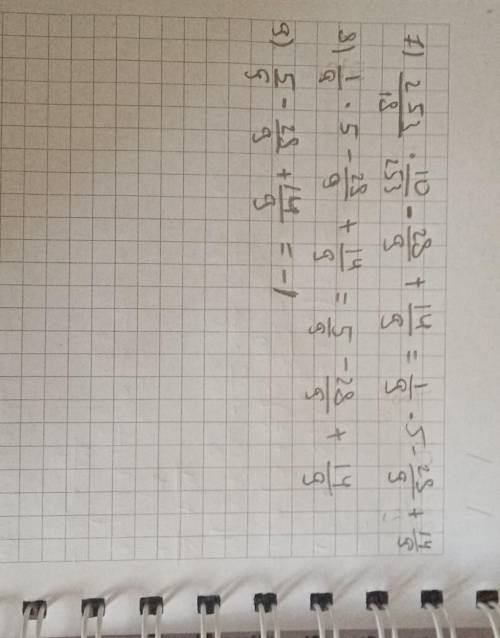 1) 253/18 · 10/253 - 28/9 + 14/9 = 1/9 · 5 - 28/9 + 14/9
3) 1/9 · 5 - 28/9 + 14/9 = 5/9 - 28/9 + 14/9
9) 5/9 - 28/9 + 14/9 = -1